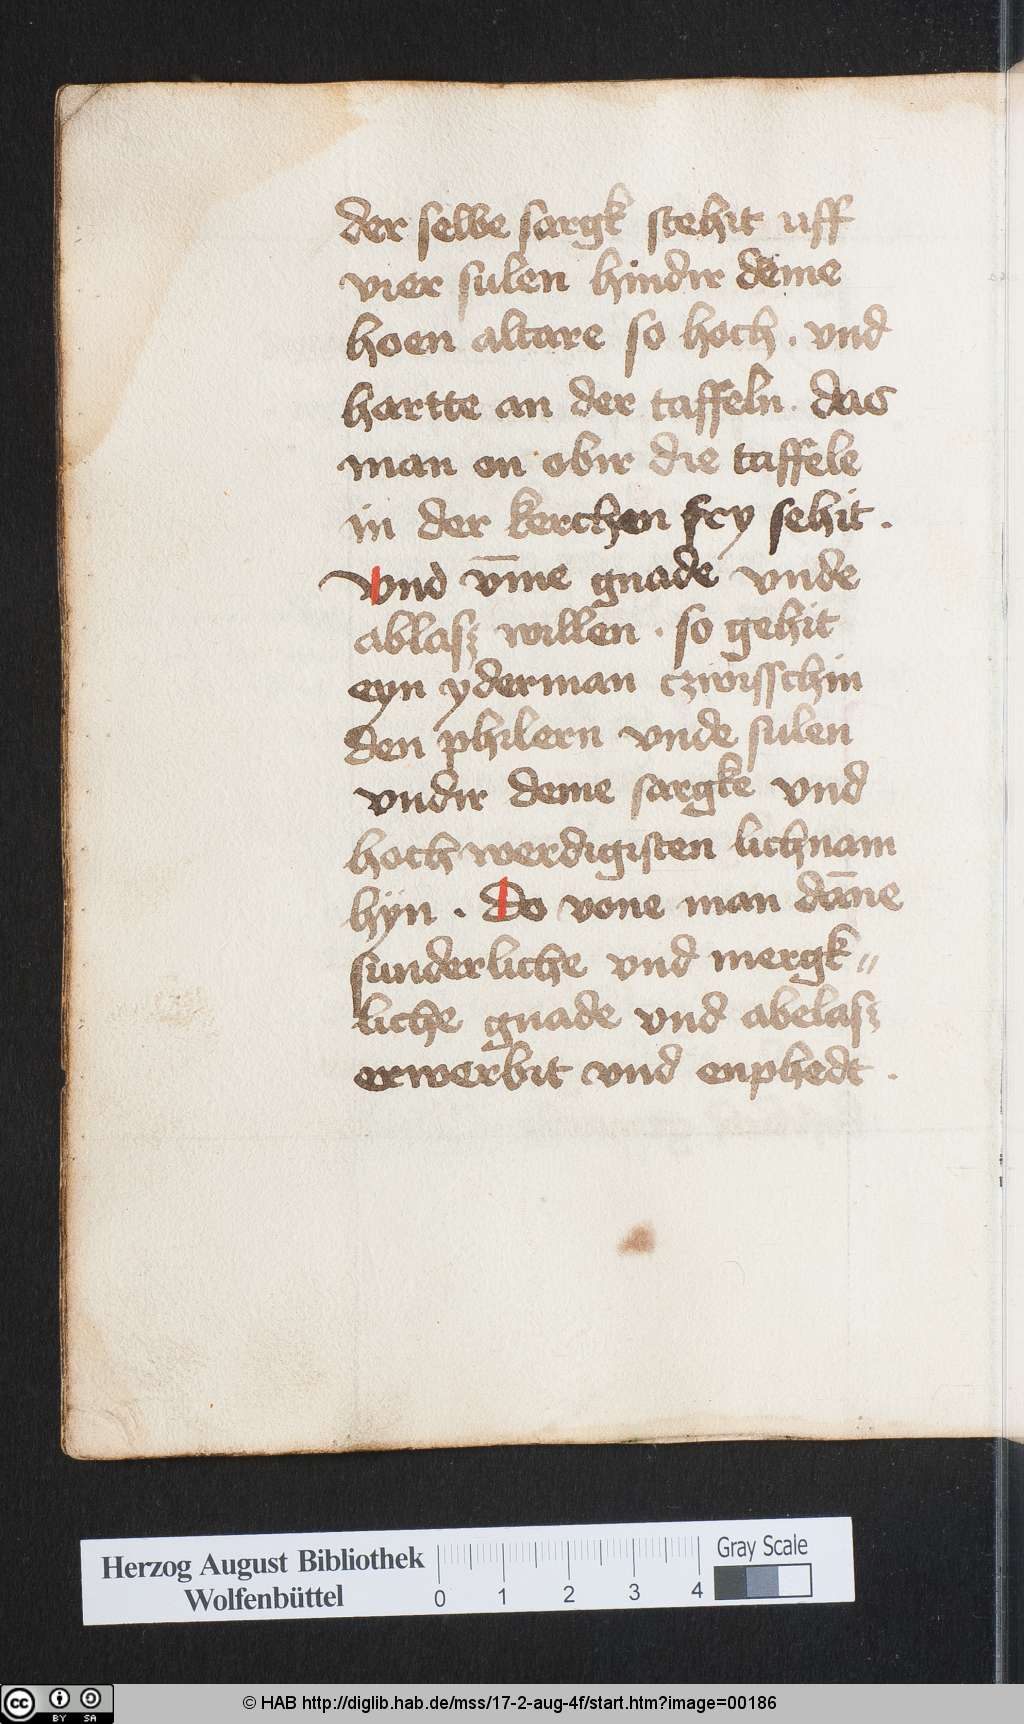 der selbe sargk stehit uff
vier sulen hindir deme
hoen altare so hoch . vnd
hartte an der taffeln . das
man en obir die taffele
in der kerchen fry sehit .
Vnd vm̅e gnade vnde
ablasz willen . so gehit
eyn yderman czwisschin
den philern vnde sulen
vndir deme sargke vnd
hoch werdigisten lichnam
hÿn . Do vone man dan̅e
sunderliche vnd mergk〃
liche gnade vnd abelasz
erwerbit vnd enphedt .
Herzog August Bibliothek
Wolfenbüttel
0 1 2 3 4
Gray Scale
cc BY SA
© HAB http://diglib.hab.de/mss/17-2-aug-4f/start.htm?image=00186